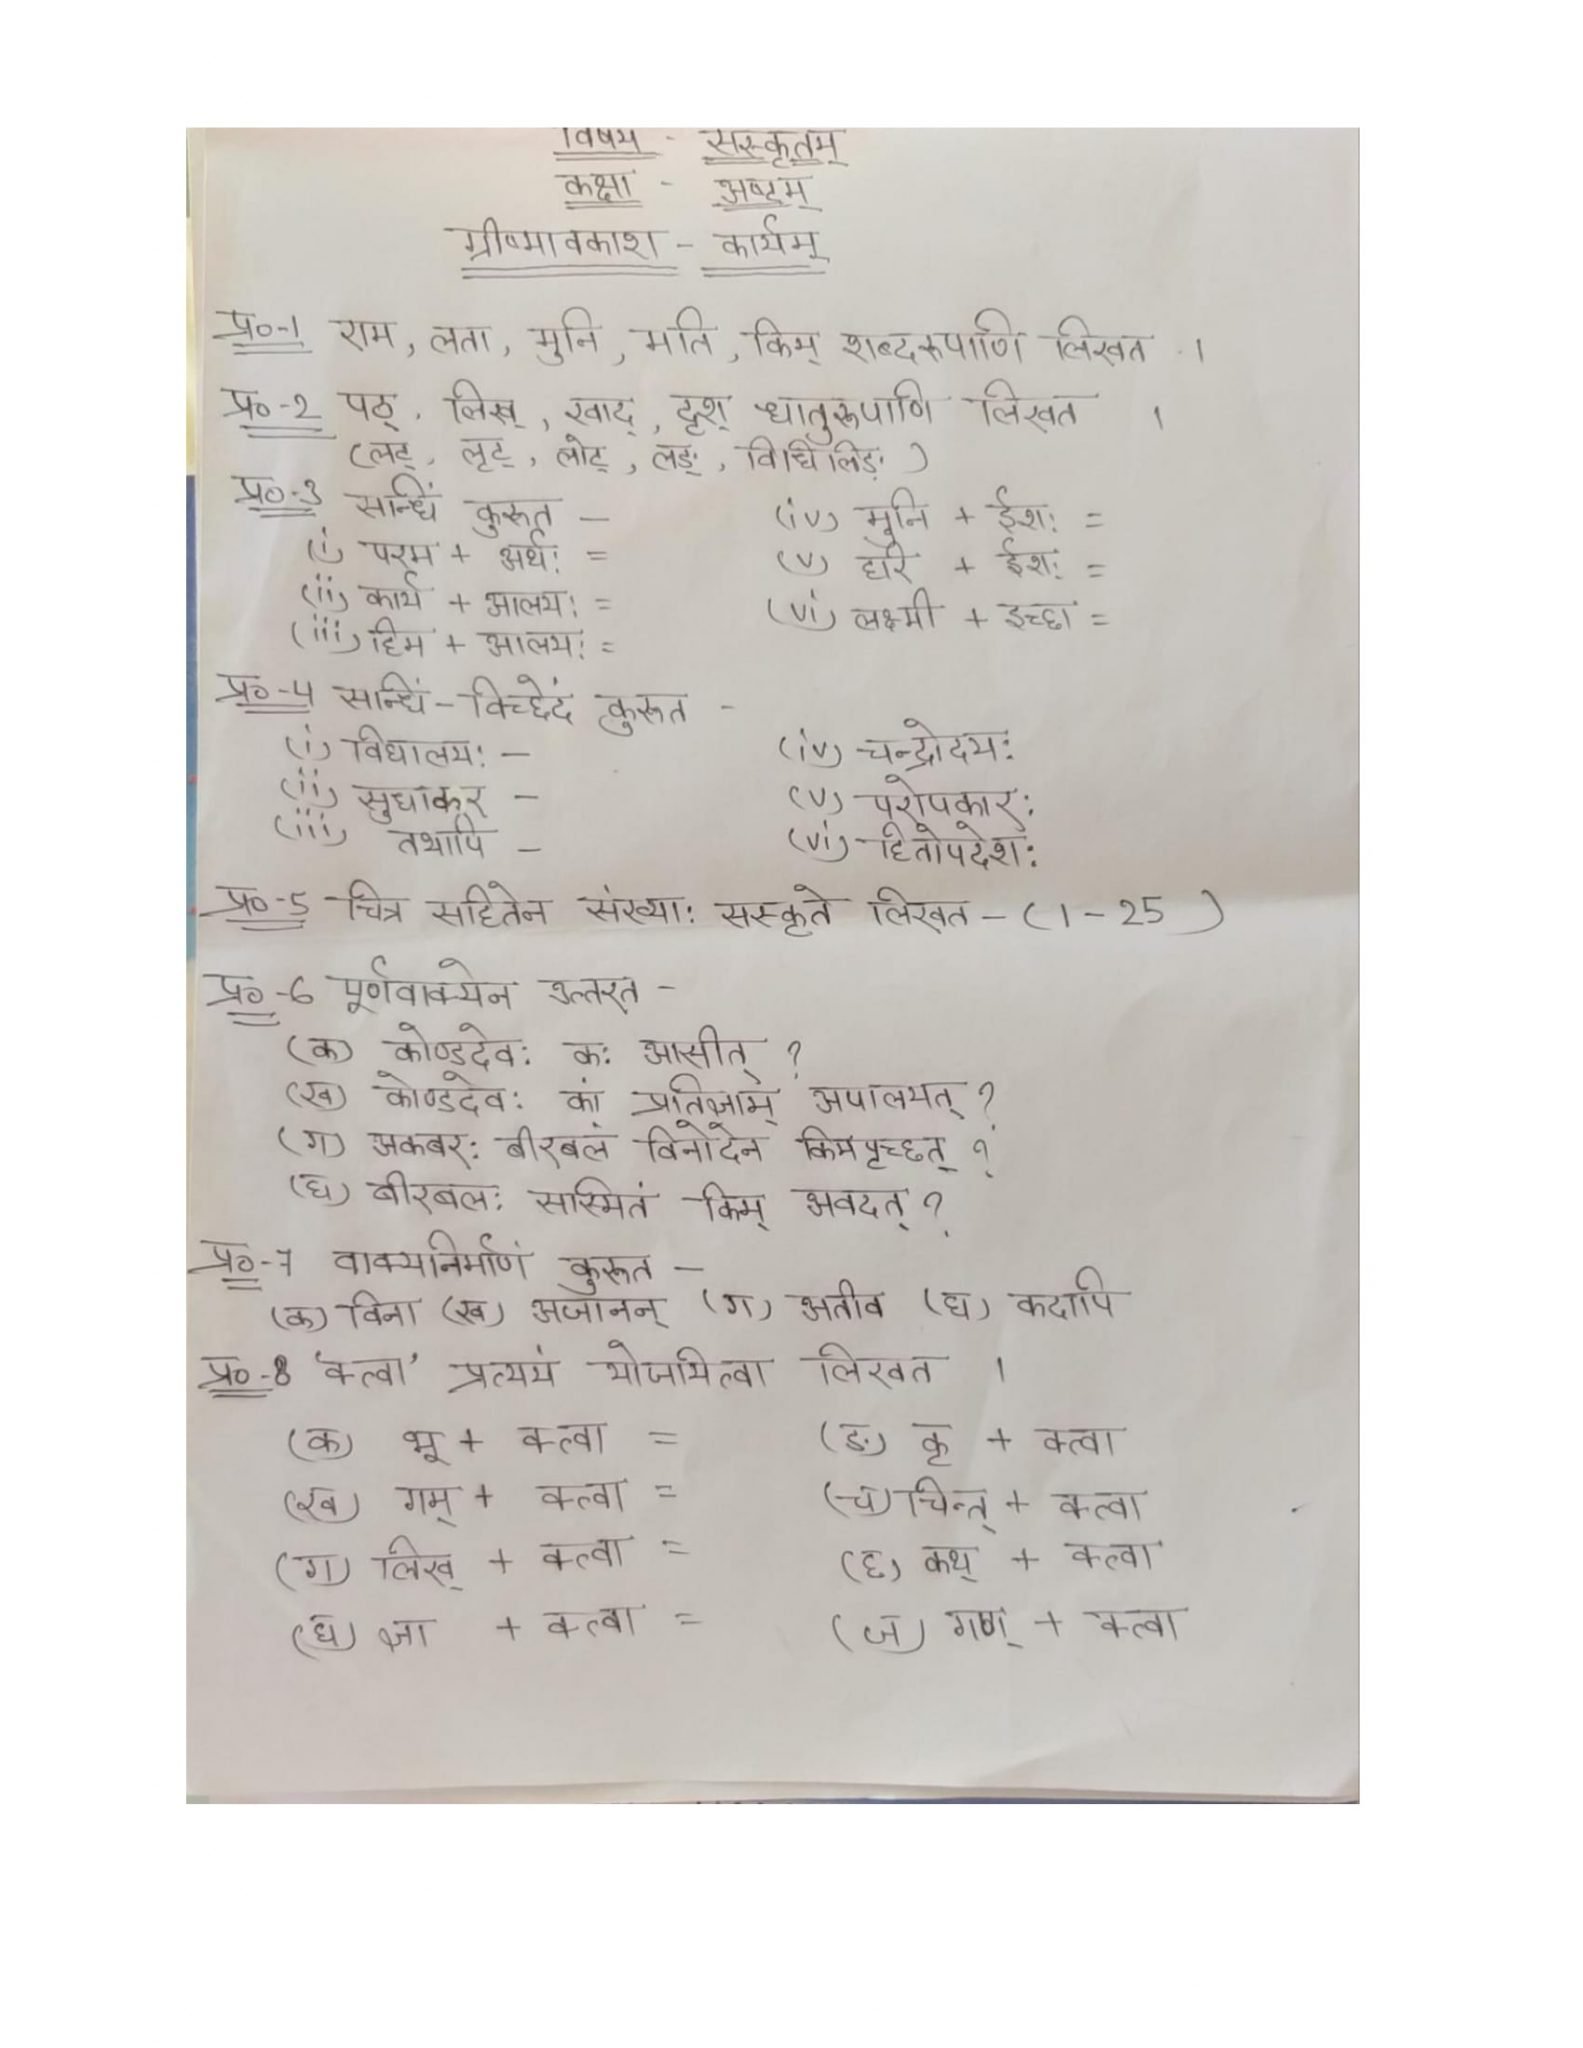 विषय - संस्कृतम्
कक्षा - अष्टम्
ग्रीष्मावकाश - कार्यम्
प्र०-1 राम, लता, मुनि, मति, किम् शब्दरूपाणि लिखत ।
प्र०-2 पठ्, लिख्, खाद्, दृश् धातुरूपाणि लिखत ।
(लट्, लृट्, लोट्, लङ्, विधिलिङ्)
प्र०-3 सन्धिं कुरूत -
(i) परम + अर्थः =
(ii) कार्य + आलयः =
(iii) हिम + आलयः =
(iv) मुनि + ईशः =
(v) हरि + ईशः =
(vi) लक्ष्मी + इच्छा =
प्र०-4 सन्धिं - विच्छेदं कुरूत -
(i) विद्यालयः -
(ii) सुधाकर -
(iii) तथापि -
(iv) चन्द्रोदयः
(v) परोपकारः
(vi) हितोपदेशः
प्र०-5 चित्र सहितेन संख्याः सस्कृते लिखत - (1-25)
प्र०-6 पूर्णवाक्येन उत्तरत -
(क) कोण्डदेवः कः आसीत् ?
(ख) कोण्डदेवः कां प्रतिज्ञाम् अपालयत् ?
(ग) अकबरः बीरबलं विनोदेन किमपृच्छत् ?
(घ) बीरबलः सस्मितं किम् अवदत् ?
प्र०-7 वाक्यनिर्माणं कुरूत -
(क) विना (ख) अजानन् (ग) अतीव (घ) कदापि
प्र०-8 'क्त्वा' प्रत्ययं योजयित्वा लिखत ।
(क) भू + क्त्वा =
(ख) गम् + क्त्वा =
(ग) लिख् + क्त्वा =
(घ) ज्ञा + क्त्वा =
(ङ) कृ + क्त्वा
(च) चिन्त् + क्त्वा
(छ) कथ् + क्त्वा
(ज) गण् + क्त्वा